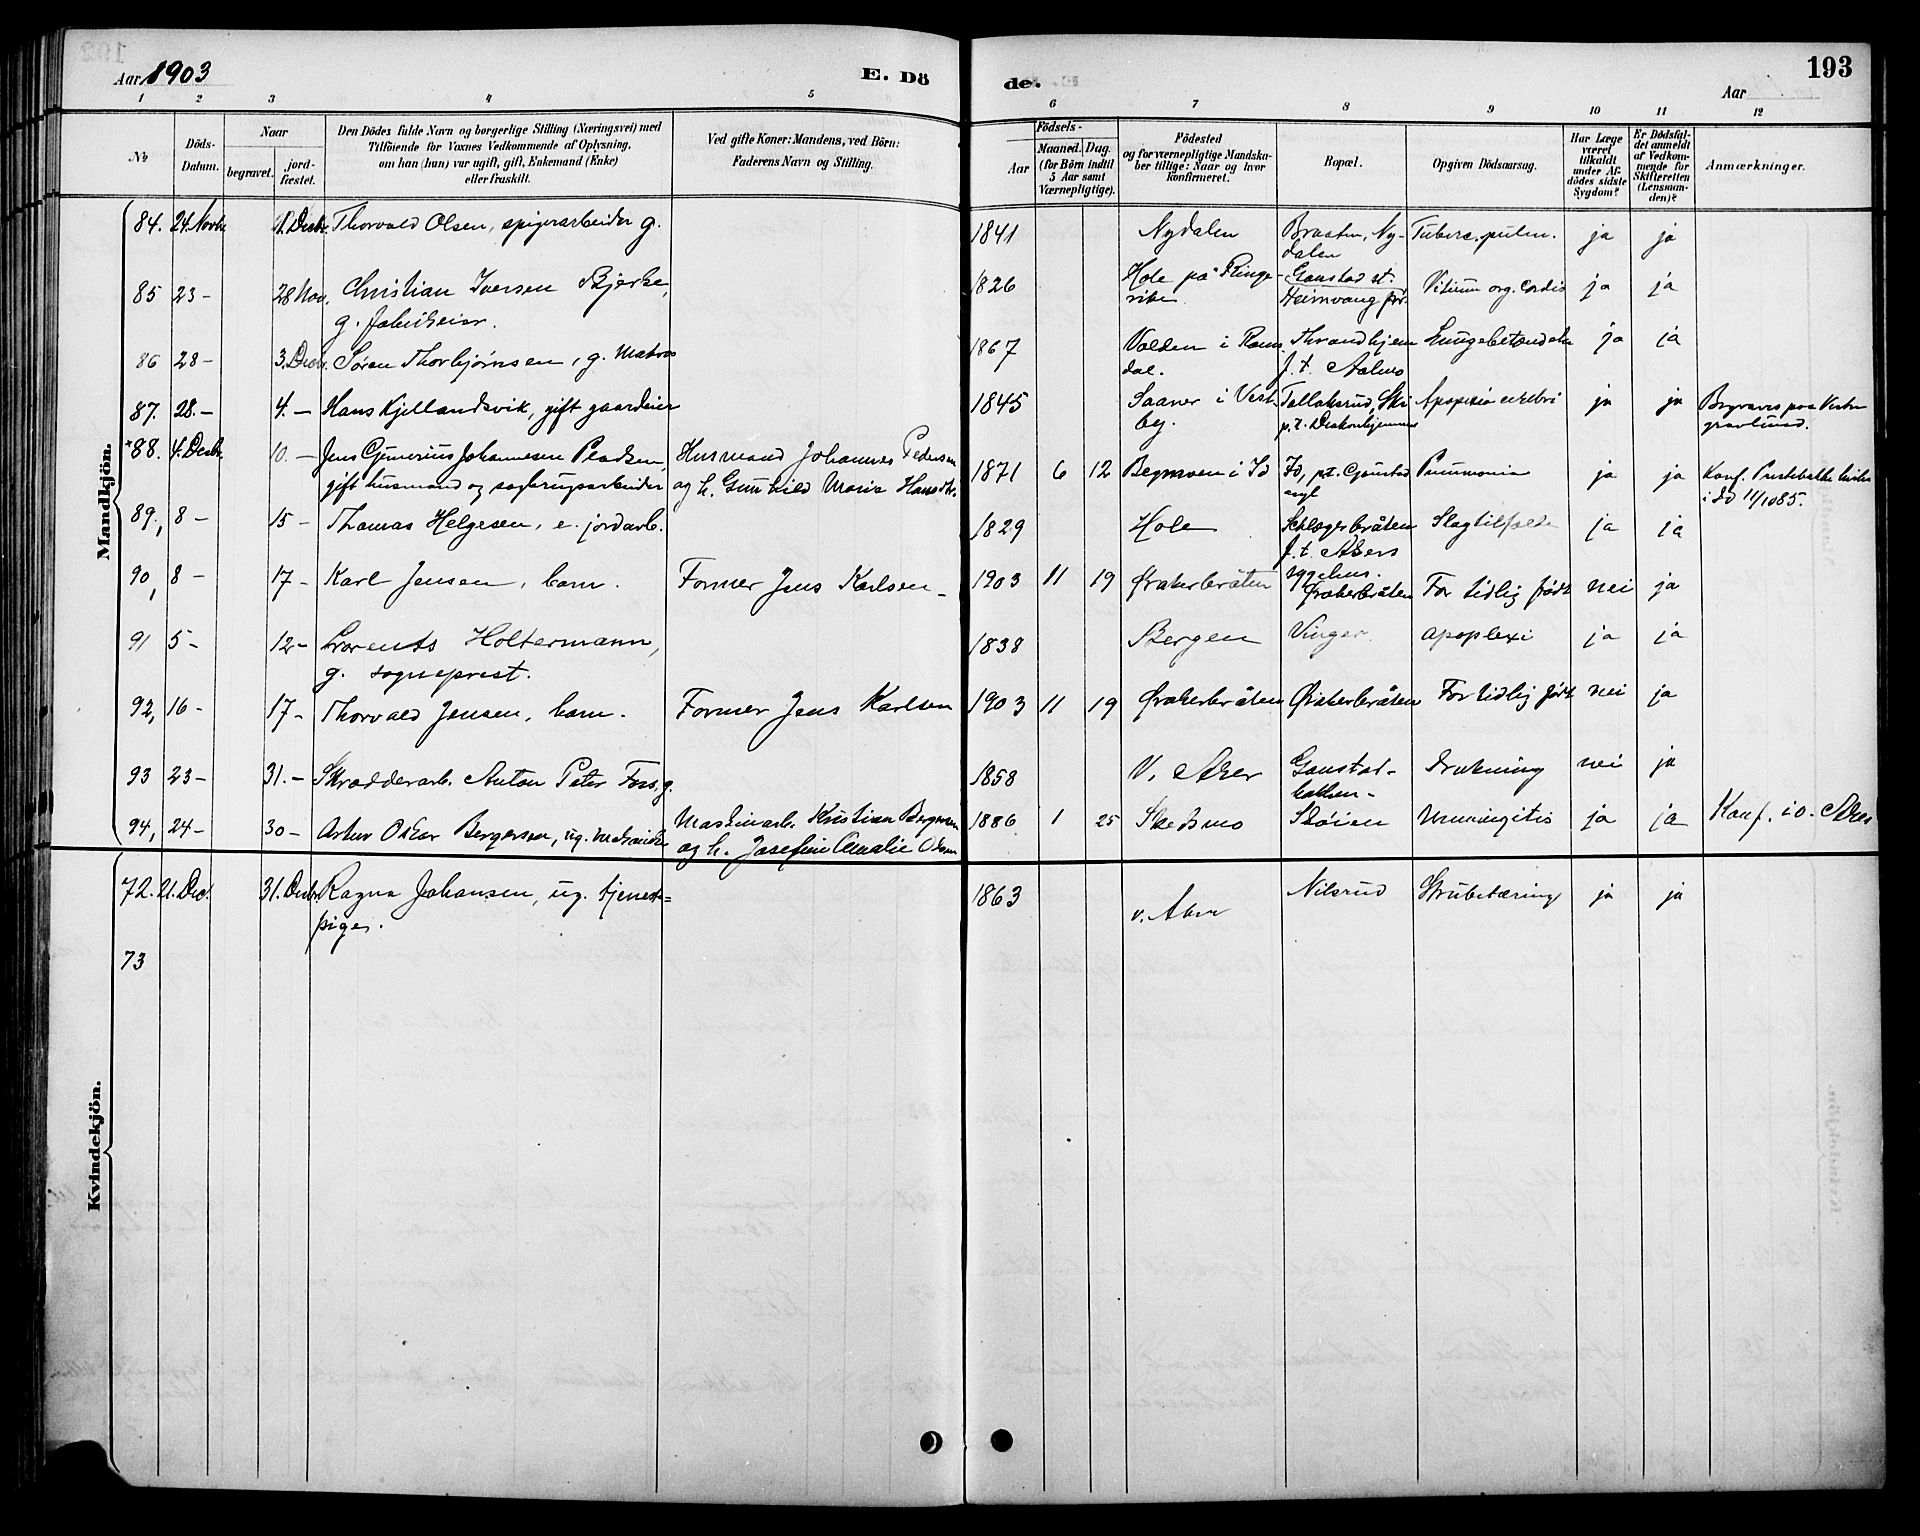 Aar 1903
E. Dö
de.
193
Aar
1 2 3 4 5 6 7 8 9 10 11 12
No
Döds-
Datum.
Naar
begravet.
jord-
fæstet.
Den Dödes fulde Navn og borgerlige Stilling (Næringsvei) med
Tilföiende for Voxnes Vedkommende af Oplysning,
om han (hun) var ugift, gift, Enkemand (Enke)
eller fraskilt.
Ved gifte Koner: Mandens, ved Börn:
Faderens Navn og Stilling.
Födsels-
Aar
Maaned. Dag.
(for Börn indtil
5 Aar samt
Værnepligtige).
Födested
og for værnepligtige Mandska-
ber tillige: Naar og hvor
konfirmeret.
Bopæl.
Opgiven Dödsaarsag.
Har Læge
været
tilkaldt
under Af-
dödes sidste
Sygdom?
Er Dödsfal-
det anmeldt
af Vedkom-
mende for
Skifteretten
(Lensman-
den)?
Anmærkninger.
Mandkjön.
84. 24. Novbr 1. Decbr. Thorvald Olsen, spigerarbeider g. 1841 Nydalen Braaten, Ny- Tuberc. pulm. ja ja
dalen
85 23 - 28 Nov. Christian Iversen Bjerke, 1826 Hole på Ringe- Gaustad st. Vitium org. cordis ja ja
g. fabrikeier. rike Heimvang
86 28 - 3. Decbr. Søren Thorbjørnsen, g. Matros 1867 Volden i Roms- Thrandhjem Lungebetændelse ja ja
dal. f. t.
87. 28. - 4. - Hans Kjellandsvik, gift gaardeier 1845 Saaner i Vest- Tallaksrud, Ski Apoplexia cerebri ja ja Begraves paa Vestre
by. p. t. Diakonhjemmet gravlund.
+88. 4. Decbr. 10. - Jens Gunerius Johannesen Husmand Johannes Pedersen 1871 6 12 Begraven i Id Id, pt. Gaustad Pneumonia ja ja Konf.
gift husmand og sagbrugsarbeider og h. Gunhild Marie asyl i Id 11/10 85.
89, 8 - 15 - Thomas Helgesen, e. jordarb. 1829 Hole Slagtilfælde ja ja
f. t. Akers
sygehus.
90, 8 - 17 - Karl Jensen, barn. Former Jens Karlsen - 1903 11 19 Øvakerbråten Øvakerbråten For tidlig født nei ja
91 5 - 12 - Lorents Holtermann, 1838 Bergen Vinger apoplexi ja ja
g. sogneprest.
92, 16 - 17 - Thorvald Jensen, barn. Former Jens Karlsen 1903 11 19 Øvakerbråten Øvakerbråten For tidlig født nei ja
93 23 - 31. - Skradderarb. Anton Peter Foss, g. 1858 V. Aker Gaustad- Drukning nei ja
bakken -
94, 24 - 30 - Artur Oskar Bergersen, ug. mekaniker Maskinarb. Kristian Bergersen 1886 1 25 Skedsmo Skøien Meningitis ja ja Konf. i ø. Aker
og h. Josefine Amalie Olsen
Kvindekjön.
72. 21. Dec. 31. Decbr. Ragna Johansen, ug. tjeneste= 1863 v. Aker Nilsrud Strubetæring ja ja
pige.
73